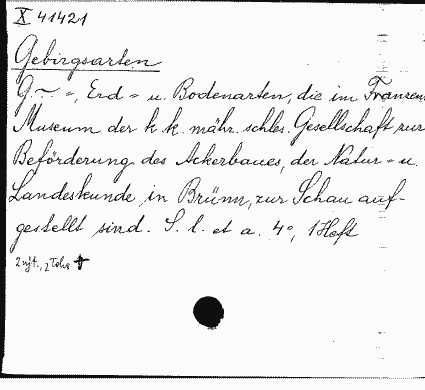 X 41421
Gebirgsarten
G. ~ =, Erd = u. Bodenarten, die im Franzens
Museum der k. k. mähr. schles. Gesellschaft zur
Beförderung des Ackerbaues, der Natur = u.
Landeskunde in Brünn, zur Schau auf-
gestellt sind. S. l. et a. 4°, 1 Heft